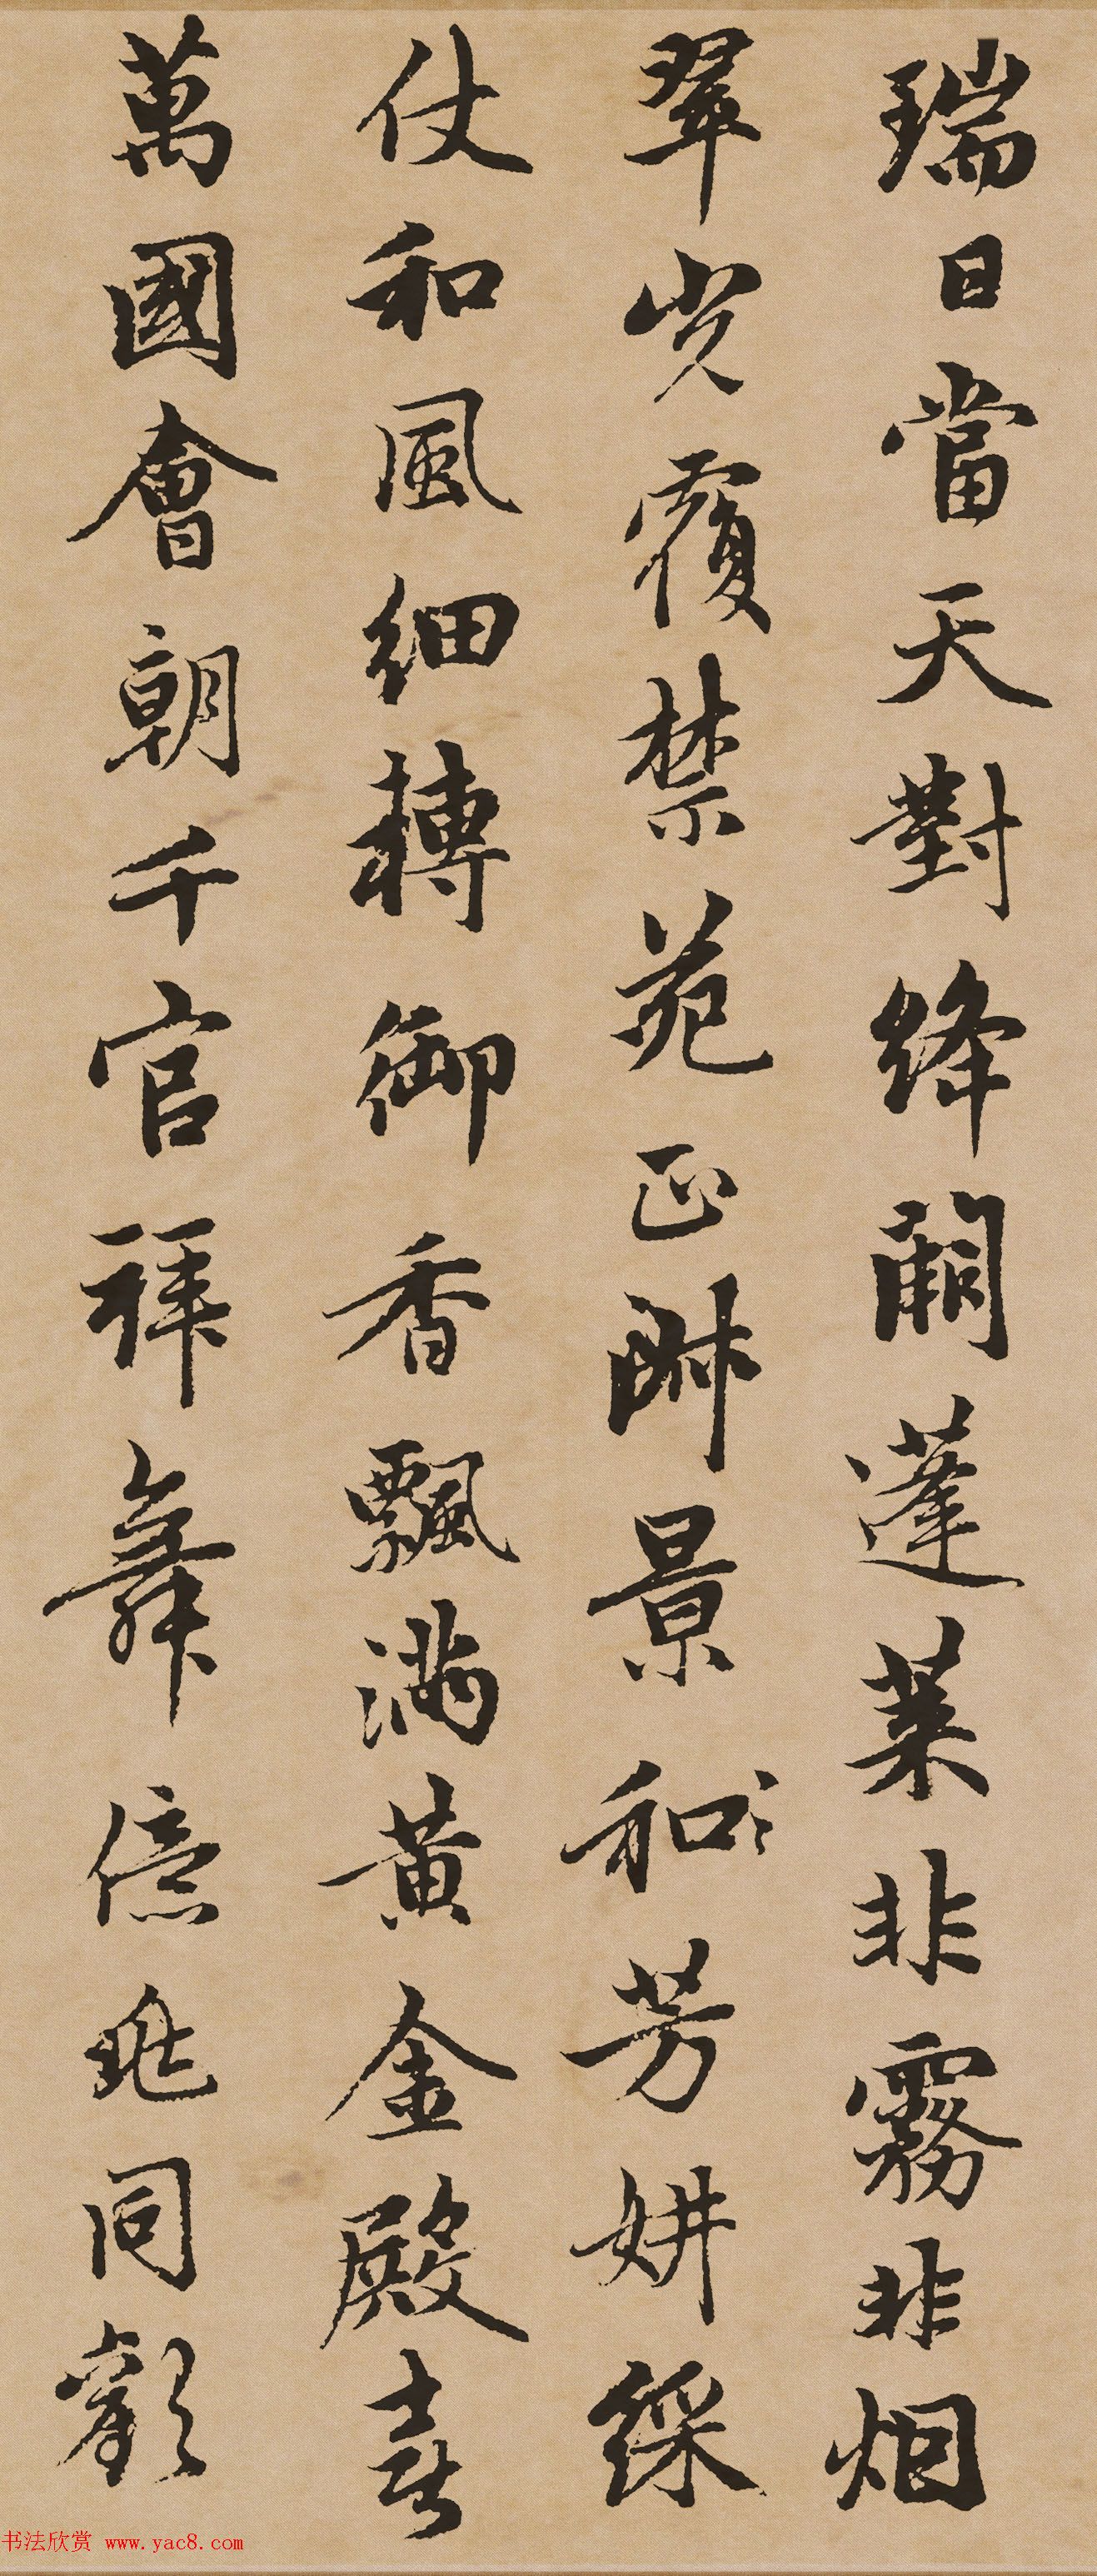 瑞日當天對絳闕蓬萊非霧非烟
翠光覆禁苑正淑景和芳妍綵
仗和風細轉御香飄滿黃金殿喜
萬國會朝千官拜舞億兆同歡
书法欣赏 www.yac8.com